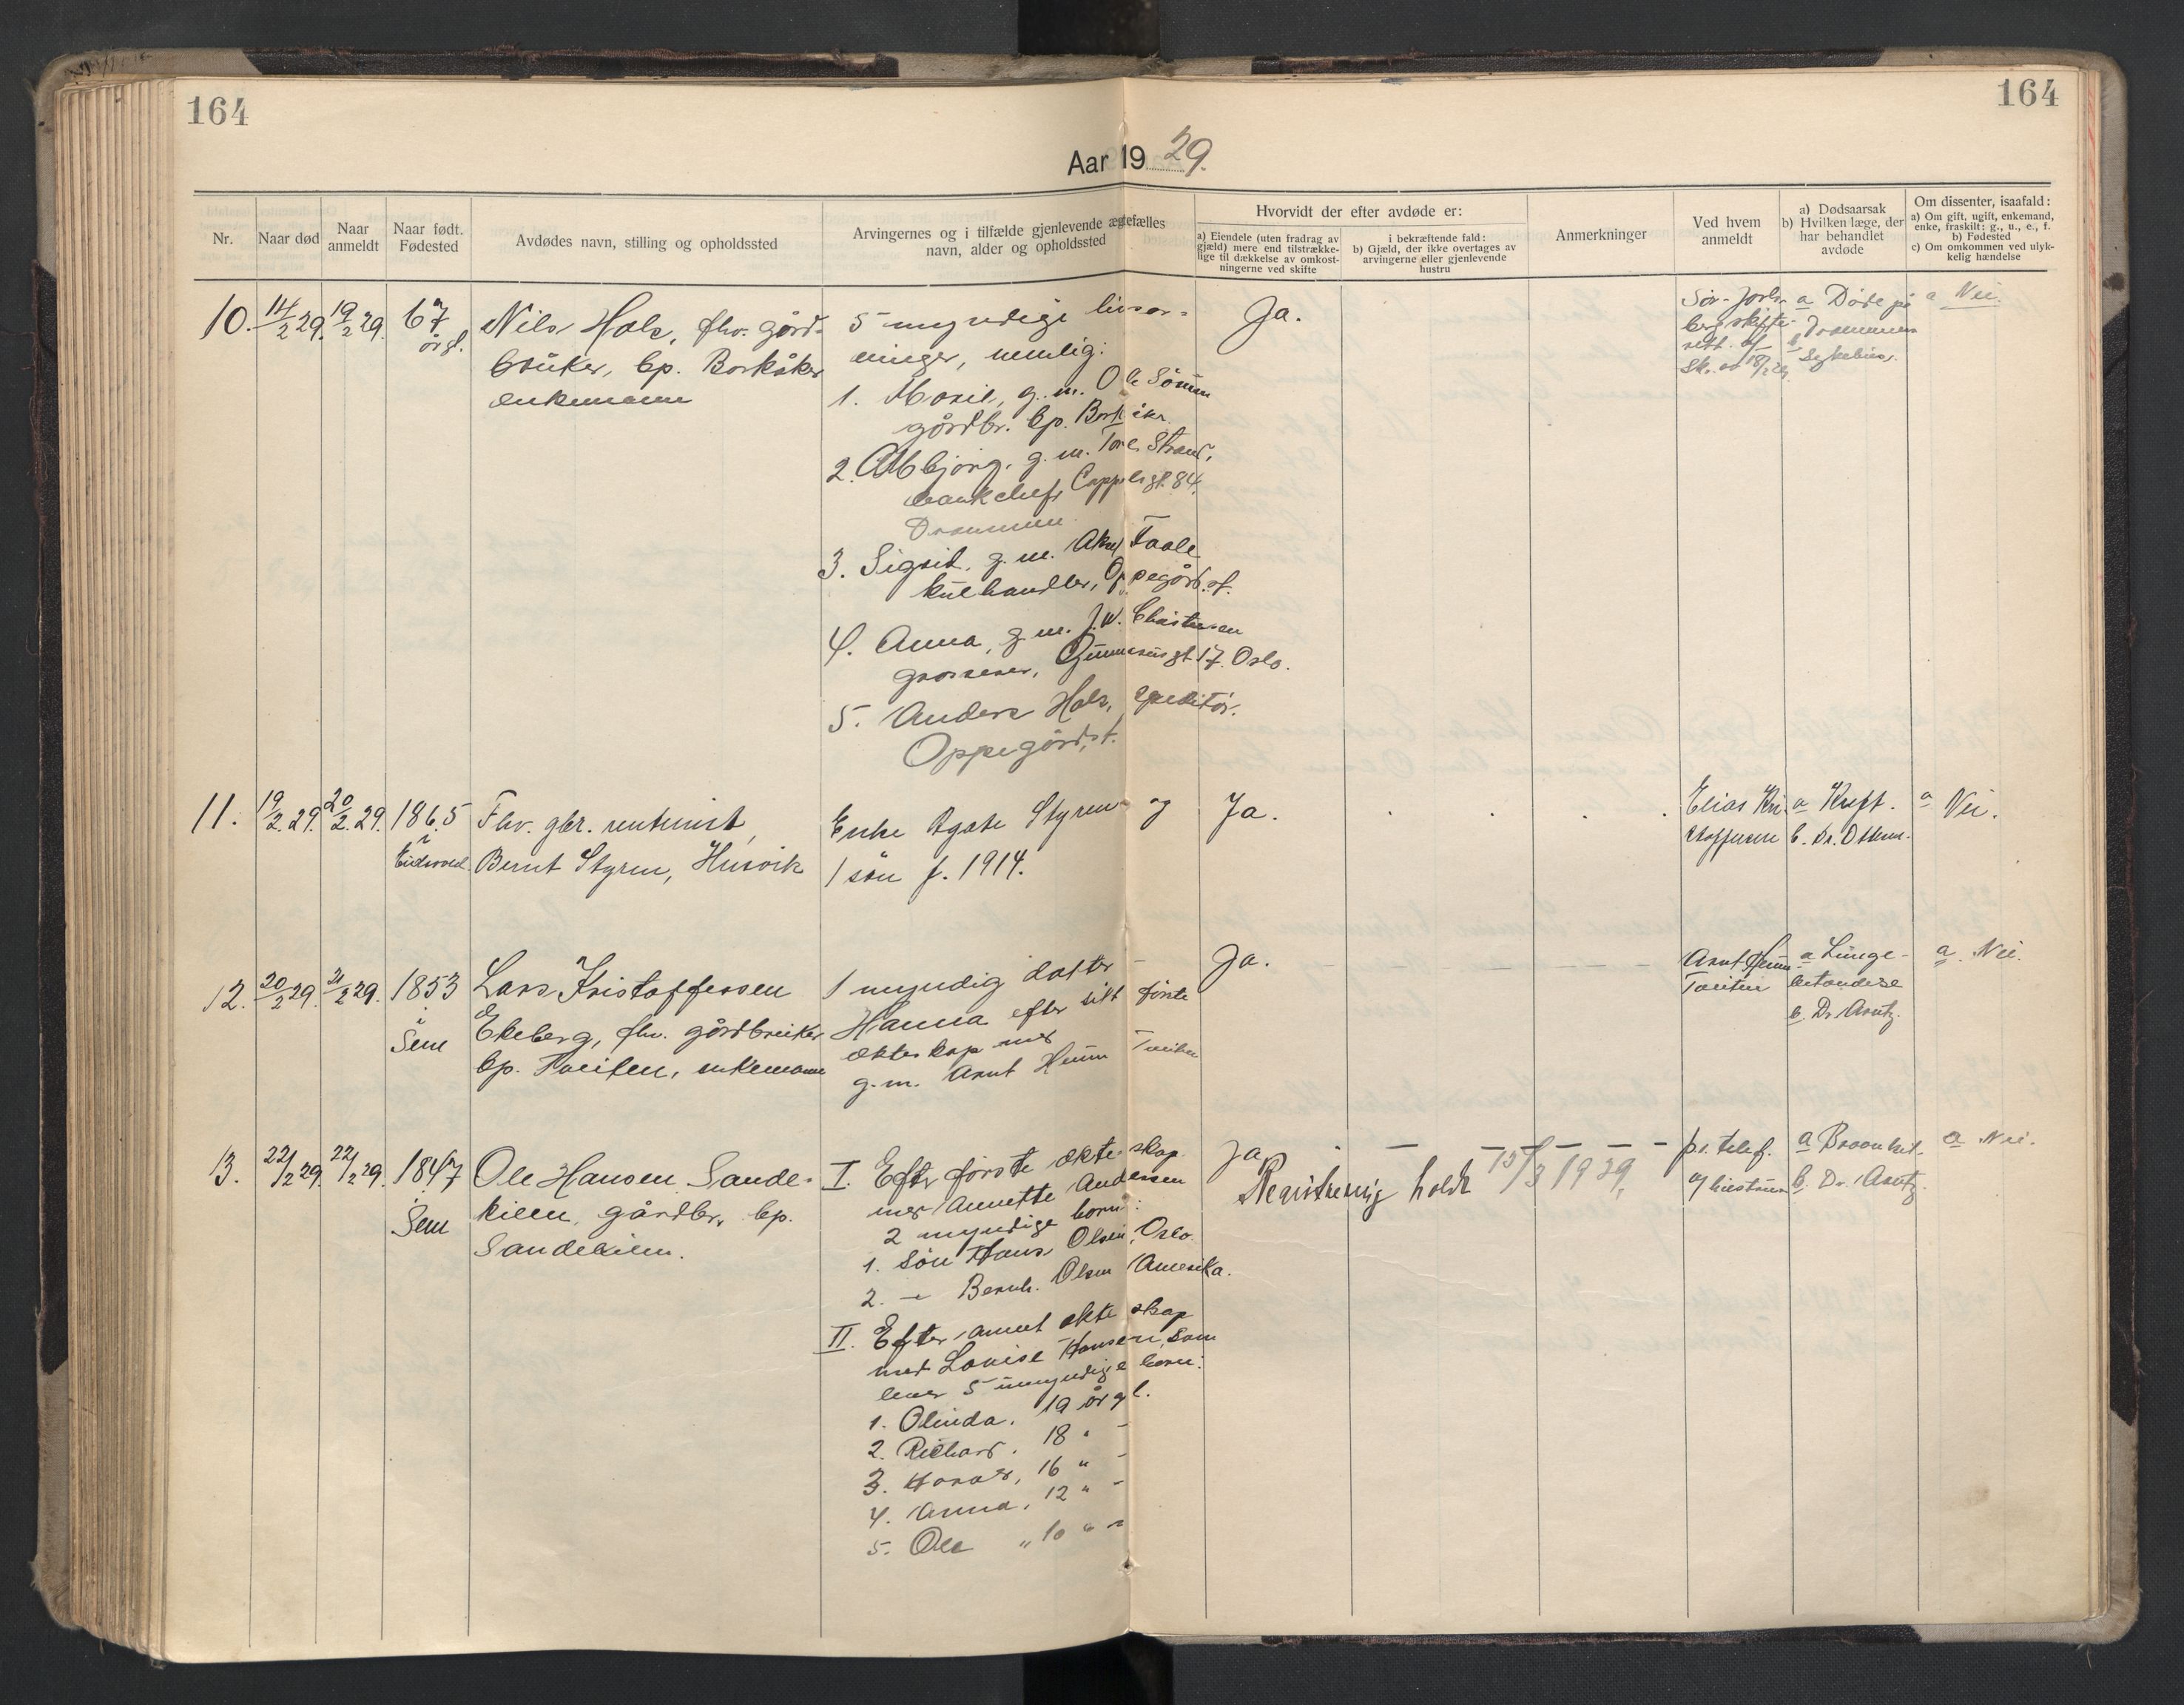 164
164
Aar 1929.
Nr.
Naar død
Naar anmeldt
Naar født. Fødested
Avdødes navn, stilling og opholdssted
Arvingernes og i tilfælde gjenlevende ægtefælles
navn, alder og opholdssted
Hvorvidt der efter avdøde er:
a) Eiendele (uten fradrag av
gjæld) mere end tilstrække-
lige til dækkelse av omkost-
ningerne ved skifte
i bekræftende fald:
b) Gjæld, der ikke overtages av
arvingerne eller gjenlevende
hustru
Anmerkninger
Ved hvem
anmeldt
a) Dødsaarsak
b) Hvilken læge, der
har behandlet
avdøde
Om dissenter, isaafald:
a) Om gift, ugift, enkemand,
enke, fraskilt: g., u., e., f.
b) Fødested
c) Om omkommen ved ulyk-
kelig hændelse
10. 14/2 29. 19/2 29. 67
år gl.
Nils Hals, fhv. gård-
bruker, bp. Borkåker
enkemann
5 myndige livsar-
vinger, nemlig:
1. Marie, g. m. Ole
gårdbr. bp. Borkåker
2. g. m. Strand,
banksjef, Cappelsgt. 84.
Drammen
3. Sigrid, g. m. Aksel
kulhandler, Oppegård st.
4. Anna, g. m. J. W. Christensen
grosserer, 17. Oslo.
5. Anders Hals, expeditør.
Oppegård st.
Ja.
skifte-
rett. 18/2 29.
a Døde på
b Drammens
Sykehus.
a Nei.
11. 19/2. 29. 20/2. 29. 1865
i
Eidsvold.
Fhv. gbr. rentenist,
Bernt Styren, Husvik
Enke Agate Styren og
1 søn f. 1914.
Ja.
Elias Kri-
stoffersen
a Kreft.
b. Dr.
a Nei.
12. 20/2 29. 21/2 29. 1853
i
Sem
Lars Kristoffersen
Ekeberg, fhv. gårdbruker
bp. Tveiten, enkemann
1 myndig datter
Hanna efter sitt første
ekteskap med
g. m. Arnt Heum Tveiten
Ja.
Arnt Heum
Tveiten
a Lunge-
betendelse
b. Dr. Arntz.
a. Nei.
13. 22/2 29. 22/2 29. 1847
i
Sem
Ole Hansen Sande-
kilen, gårdbr. bp.
Sandekilen.
I. Efter første ekteskap
med Annette Andersen
2 myndige barn:
1. søn Hans Olsen, Oslo.
2. — Bernh. Olsen Amerika.
II. Efter annet ekteskap
med Lovise Hansen, som
lever 5 umyndige barn:
1. Olinda. 19 år gl.
2. Richard. 18 " -
3. Harald, 16 " -
4. Anna. 12 " -
5. Ole " 10 " -
Ja
Registrering holdt 15/3 1929.
pr. telef.
av hustruen
a
b. Dr. Arntz.
a Nei.